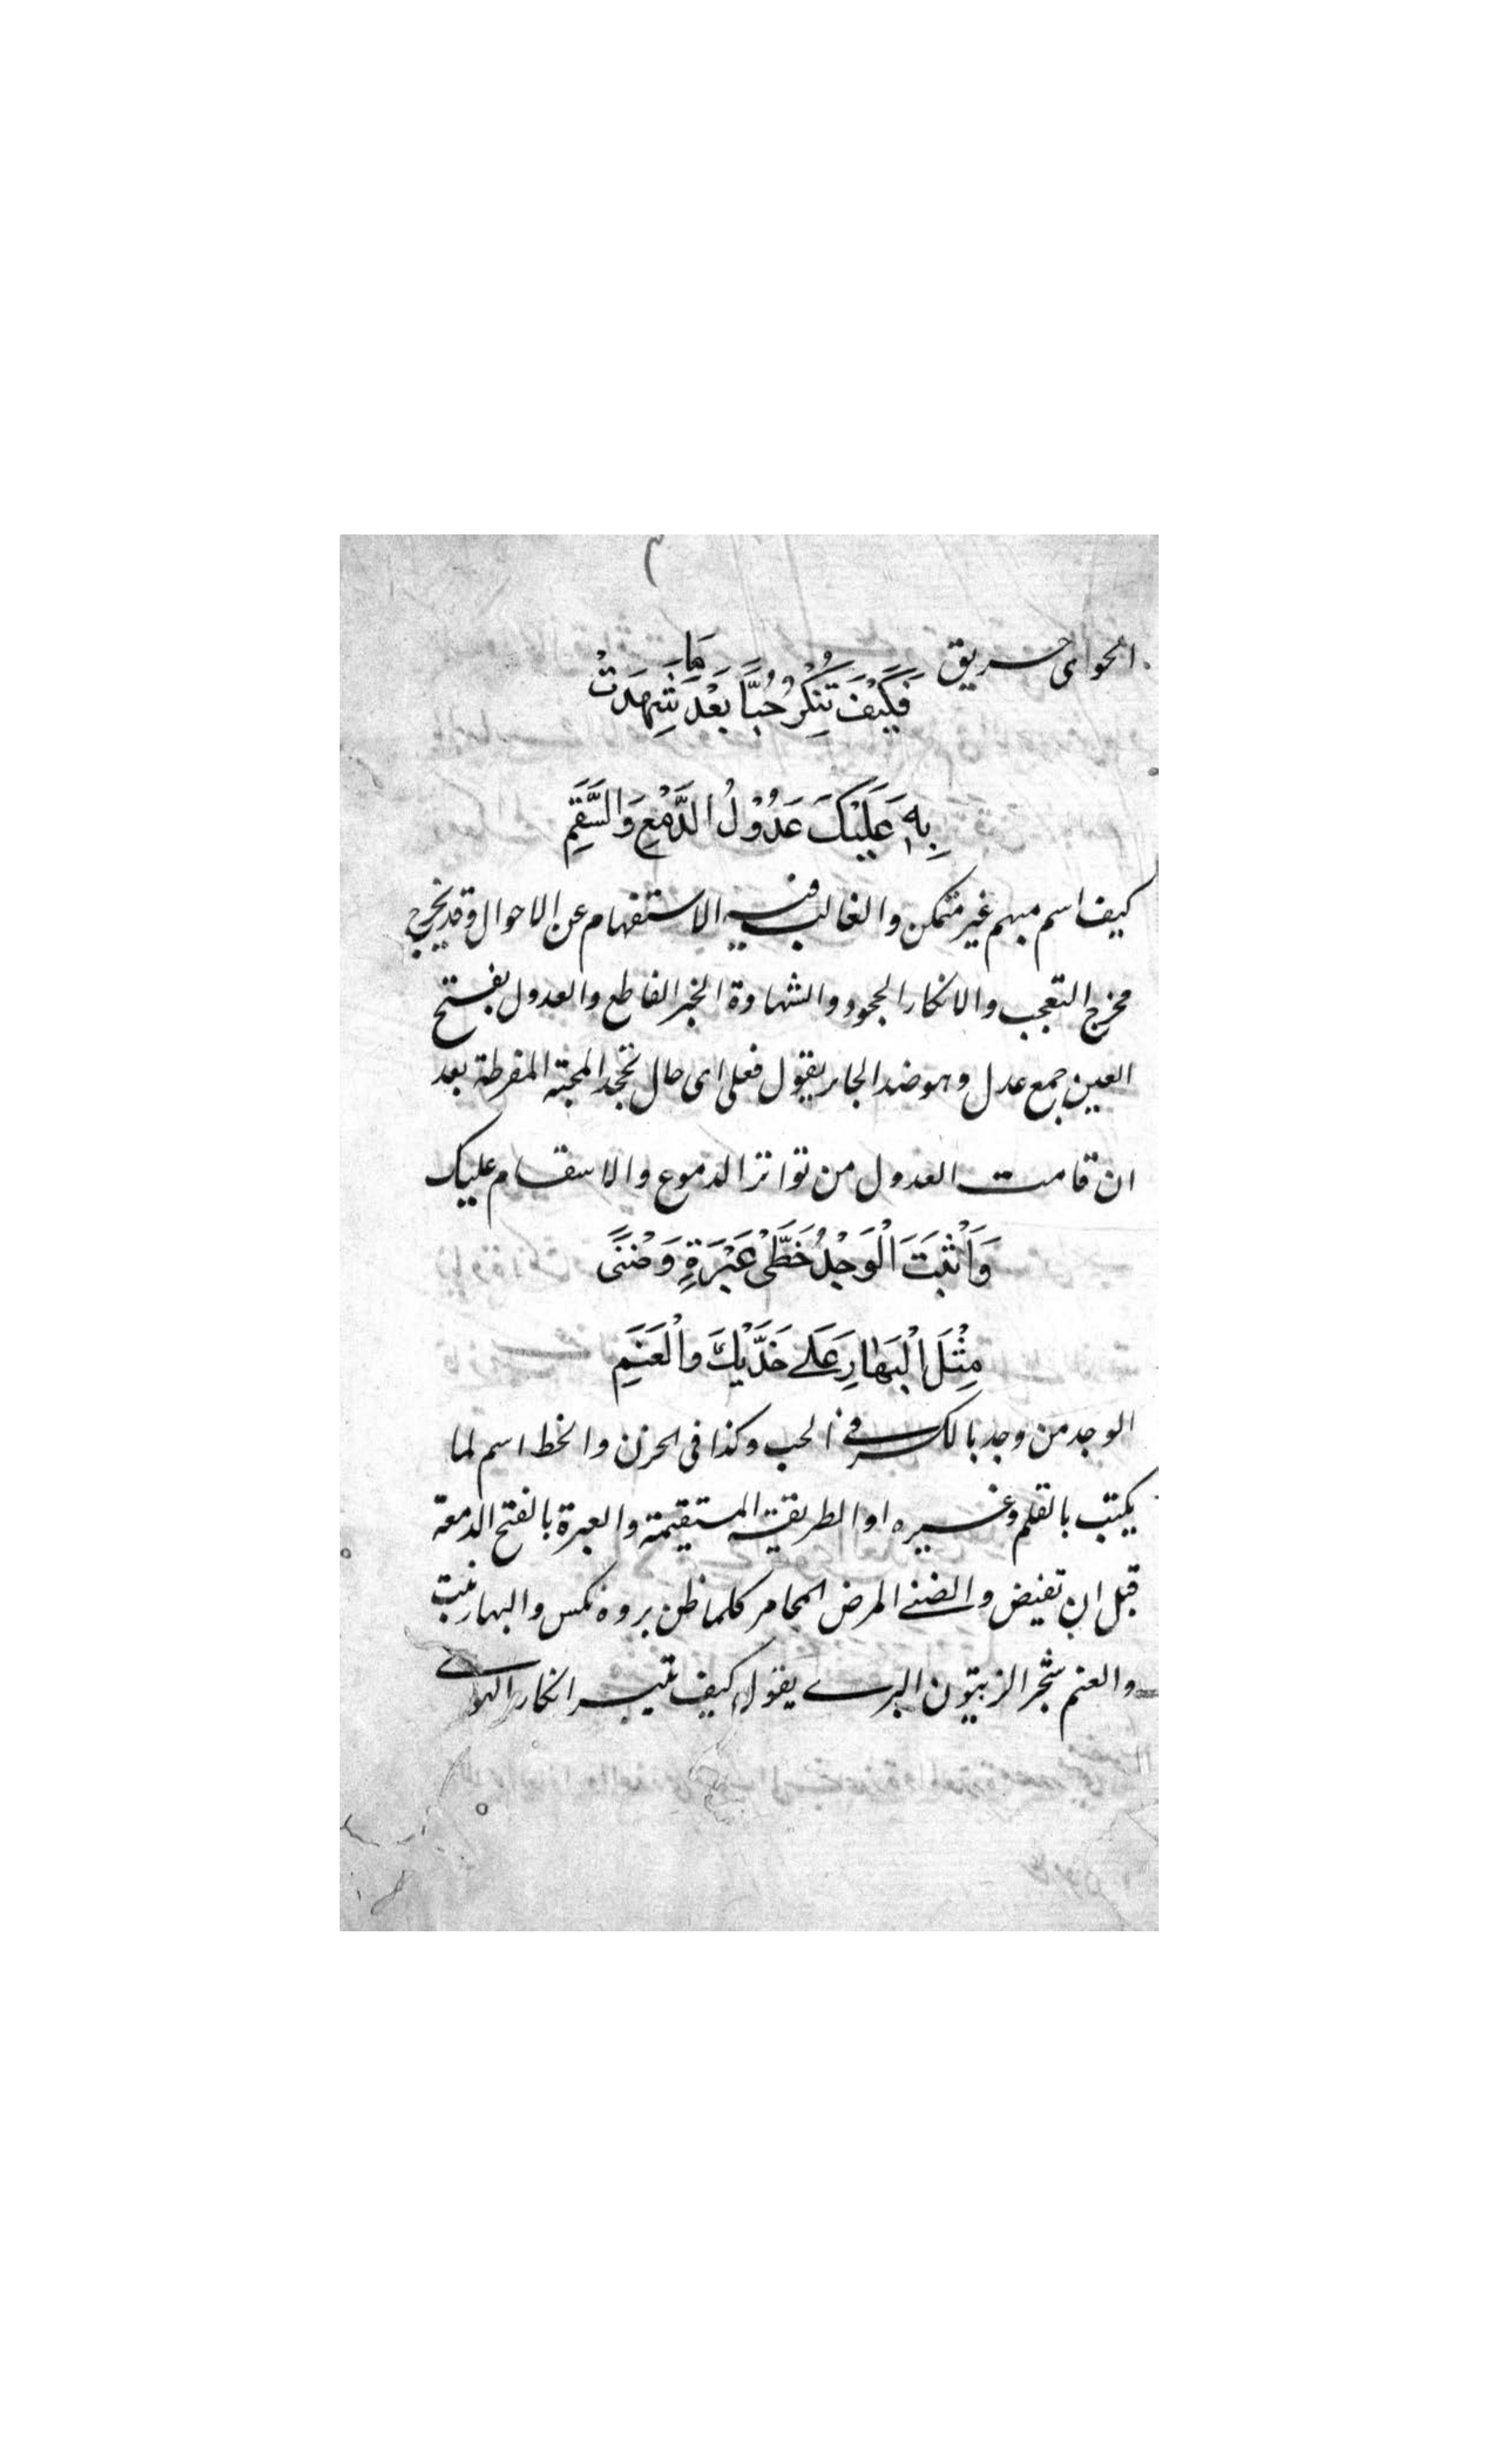 الجواى حريق
فَكَيْفَ تُنْكِرُ حُبًّا بَعْدَ مَا شَهِدَتْ
بِهٖ عَلَيْكَ عَدُوْلُ الدَّمْعِ وَالسَّقَمِ
كيف اسم مبهم غير متمكن والغالب فيه الاستفهام عن الاحوال وقد يخرج
مخرج التعجب والانكار الجحود والشهادة الخبر القاطع والعدول بفتح
العين جمع عدل وهو ضد الجابر يقول فعلى اى حال تجحد المحبة المفرطة بعد
ان قامت العدول من تواتر الدموع والاسقام عليك
وَاَثْبَتَ الْوَجْدُ خَطَّىْ عَبْرَةٍ وَضَنًى
مِثْلَ الْبَهَارِ عَلٰے خَدَّيْكَ وَالْعَنَمِ
الوجد من وجد بالكسر فى الحب وكذا فى الحزن والخط اسم لما
يكتب بالقلم وغيره او الطريقة المستقيمة والعبرة بالفتح الدمعة
قبل ان تفيض والضنے المرض المخامر كلما ظن بروه نكس والبهار نبت
والعنم شجر الزيتون البرے يقول كيف انكار الهوے